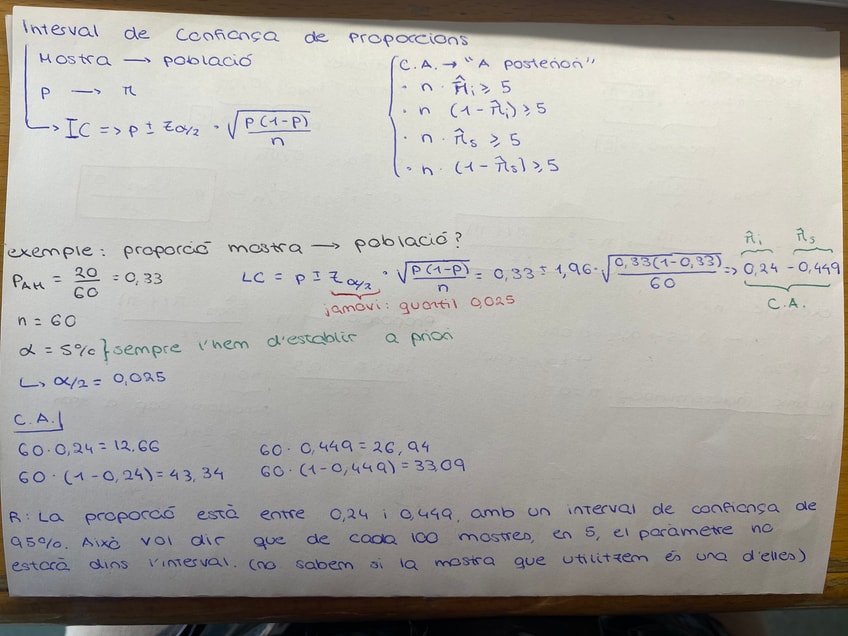 Interval de confiança de proporcions
Mostra → població
p → π
IC => p ± Zα/2 · √(p(1-p)/n)
C.A. → "A posteriori"
· n · π̂i ≥ 5
· n (1-π̂i) ≥ 5
· n · π̂s ≥ 5
· n · (1-π̂s) ≥ 5
exemple: proporció mostra → població?
PAH = 20/60 = 0,33
LC = p ± Zα/2 · √(p(1-p)/n) = 0,33 ± 1,96 · √(0,33(1-0,33)/60) => 0,24 - 0,449
π̂i π̂s
C.A.
jamovi: quartil 0,025
n = 60
α = 5% } sempre l'hem d'establir a priori
↳ α/2 = 0,025
C.A.
60 · 0,24 = 12,66
60 · 0,449 = 26,94
60 · (1-0,24) = 43,34
60 · (1-0,449) = 33,09
R: La proporció està entre 0,24 i 0,449, amb un interval de confiança de
95%. Això vol dir que de cada 100 mostres, en 5, el paràmetre no
estarà dins l'interval. (no sabem si la mostra que utilitzem és una d'elles)